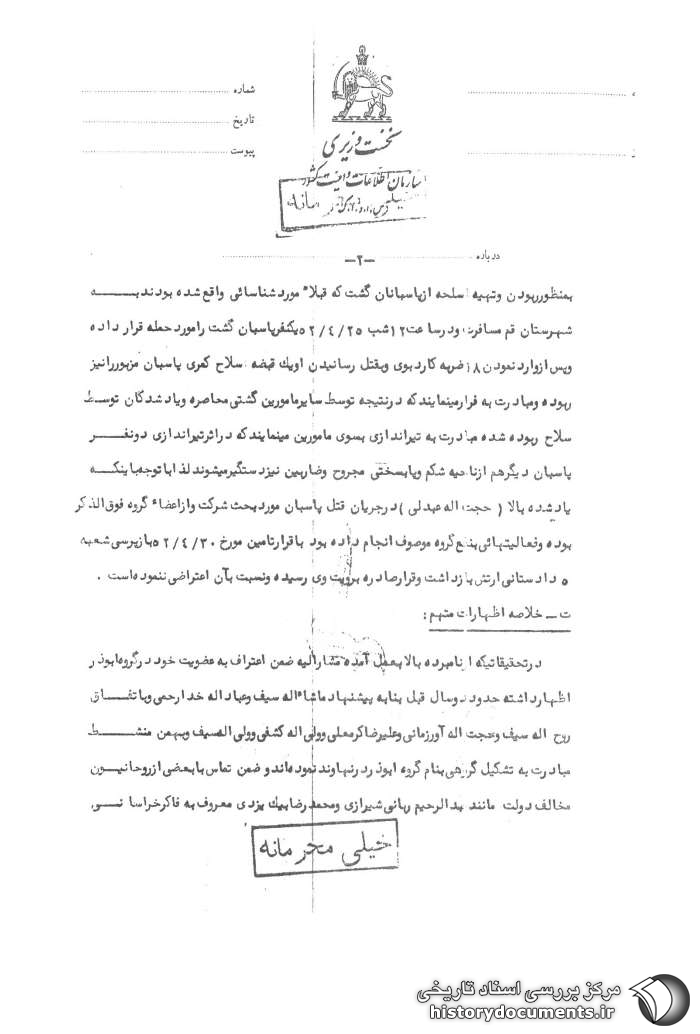 شماره
تاریخ
پیوست
نخست وزیری
سازمان اطلاعات و امنیت کشور
درباره
-۲-
بمنظور ربودن و تهیه اسلحه از پاسبانان گشت که قبلاً مورد شناسائی واقع شده بودند به
شهرستان قم مسافرت و در ساعت ۱۲ شب ۵۲/۴/۲۵ یکنفر پاسبان گشت را مورد حمله قرار داده
و پس از وارد نمودن ۸ ضربه کارد بوی و بقتل رسانیدن او یک قبضه سلاح کمری پاسبان مزبور را نیز
ربوده و مبادرت به فرار مینمایند که در نتیجه توسط سایر مامورین گشتی محاصره و یاد شدگان توسط
سلاح ربوده شده مبادرت به تیراندازی بسوی مامورین مینمایند که در اثر تیراندازی دو نفر
پاسبان دیگر هم از ناحیه شکم و پا بسختی مجروح و ضاربین نیز دستگیر میشوند لذا با توجه باینکه
یاد شده بالا (حجت اله عبدلی) در جریان قتل پاسبان مورد بحث شرکت و از اعضاء گروه فوق الذکر
بوده و فعالیتهائی بنفع گروه موصوف انجام داده بود با قرار تامین مورخ ۵۲/۴/۳۰ بازپرسی شعبه
۵ دادستانی ارتش بازداشت و قرار صادره برویت وی رسیده و نسبت بآن اعتراضی ننموده است .
ت - خلاصه اظهارات متهم :
در تحقیقاتیکه از نامبرده بالا بعمل آمده مشارالیه ضمن اعتراف به عضویت خود در گروه ابوذر
اظهار داشته حدود دو سال قبل بنا به پیشنهاد ماشاءاله سیف و عباداله خدارحمی و با تفاق
روح اله سیف و حجت اله آورزمانی و علیرضا کرمعلی و ولی اله کشفی و ولی اله سیف و بهمن منشط
مبادرت به تشکیل گروهی بنام گروه ابوذر در نهاوند نموده‌اند و ضمن تماس با بعضی از روحانیون
مخالف دولت مانند عبدالرحیم ربانی شیرازی و محمدرضا بیک یزدی معروف به فاکر خراسانی
خیلی محرمانه
مرکز بررسی اسناد تاریخی
historydocuments.ir